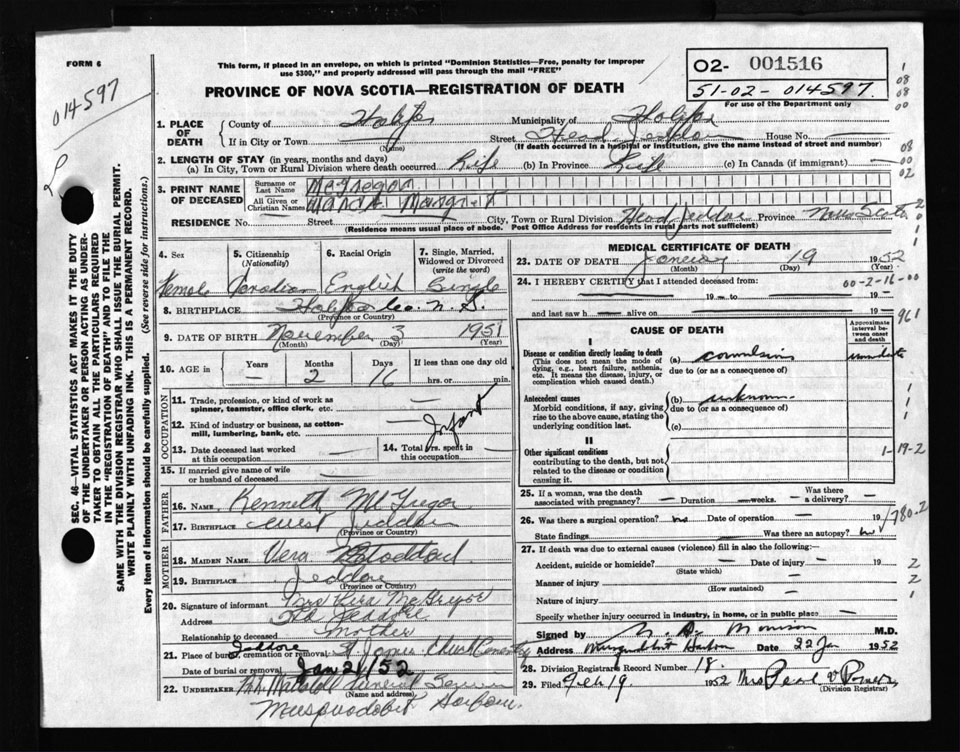 FORM 6
014597
This form, if placed in an envelope, on which is printed "Dominion Statistics—Free, penalty for improper
use $300," and properly addressed will pass through the mail "FREE"
PROVINCE OF NOVA SCOTIA—REGISTRATION OF DEATH
O2- 001516
51-02-014597
For use of the Department only
SEC. 46—VITAL STATISTICS ACT MAKES IT THE DUTY
OF THE UNDERTAKER OR PERSON ACTING AS UNDER-
TAKER TO OBTAIN ALL THE PARTICULARS REQUIRED
IN THE "REGISTRATION OF DEATH" AND TO FILE THE
SAME WITH THE DIVISION REGISTRAR WHO SHALL ISSUE THE BURIAL PERMIT.
WRITE PLAINLY WITH UNFADING INK. THIS IS A PERMANENT RECORD.
Every item of information should be carefully supplied. (See reverse side for instructions.)
1. PLACE OF DEATH County of Halifax Municipality of Halifax
If in City or Town (Name) Street Head Jeddore House No.
(If death occurred in a hospital or institution, give the name instead of street and number)
2. LENGTH OF STAY (in years, months and days)
(a) In City, Town or Rural Division where death occurred Life (b) In Province Life (c) In Canada (if immigrant)
3. PRINT NAME OF DECEASED Surname or Last Name McGregor
All Given or Christian Names Margaret
RESIDENCE No. Street City, Town or Rural Division Head Jeddore Province Nova Scotia
(Residence means usual place of abode. Post Office Address for residents in rural parts not sufficient)
4. Sex Female
5. Citizenship (Nationality) Canadian
6. Racial Origin English
7. Single, Married, Widowed or Divorced (write the word) Single
8. BIRTHPLACE Halifax Co. N. S.
(Province or Country)
9. DATE OF BIRTH November 3 1951
(Month) (Day) (Year)
10. AGE in Years — Months 2 Days 16 If less than one day old hrs. or min.
OCCUPATION
11. Trade, profession, or kind of work as
spinner, teamster, office clerk, etc.
12. Kind of industry or business, as cotton-
mill, lumbering, bank, etc. Infant
13. Date deceased last worked at this occupation
14. Total yrs. spent in this occupation
15. If married give name of wife
or husband of deceased
FATHER
16. NAME Kenneth McGregor
17. BIRTHPLACE West Jeddore
(Province or Country)
MOTHER
18. MAIDEN NAME Vera Stoddard
19. BIRTHPLACE Jeddore
(Province or Country)
20. Signature of informant Mrs McGregor
Address Jeddore
Relationship to deceased Mother
21. Place of burial, cremation or removal Jeddore St James Church Cemetery
Date of burial or removal Jan 21/52
22. UNDERTAKER Funeral Service
(Name and address)
Musquodoboit Harbour.
MEDICAL CERTIFICATE OF DEATH
23. DATE OF DEATH January 19 1952
(Month) (Day) (Year)
24. I HEREBY CERTIFY that I attended deceased from:
00-2-16-00
19 to 19
and last saw h alive on 19
961
CAUSE OF DEATH
Approximate interval between onset and death
I
Disease or condition directly leading to death (a) convulsion immediate
(This does not mean the mode of dying, e.g., heart failure, asthenia, etc. It means the disease, injury, or complication which caused death.)
due to (or as a consequence of)
Antecedent causes (b) unknown
Morbid conditions, if any, giving rise to the above cause, stating the underlying condition last.
due to (or as a consequence of)
(c)
II
Other significant conditions
contributing to the death, but not related to the disease or condition causing it.
1-19-2
25. If a woman, was the death associated with pregnancy? Duration weeks. Was there a delivery?
26. Was there a surgical operation? no Date of operation 19
780.2
State findings Was there an autopsy? no
27. If death was due to external causes (violence) fill in also the following:—
Accident, suicide or homicide? Date of injury 19
(State which)
Manner of injury
(How sustained)
Nature of injury
Specify whether injury occurred in industry, in home, or in public place
Signed by Morrison M.D.
Address Musquodoboit Harbour Date 22 Jan 1952
28. Division Registrar's Record Number 18.
29. Filed Feb 19 1952 Mrs Pearl V Power
(Division Registrar)